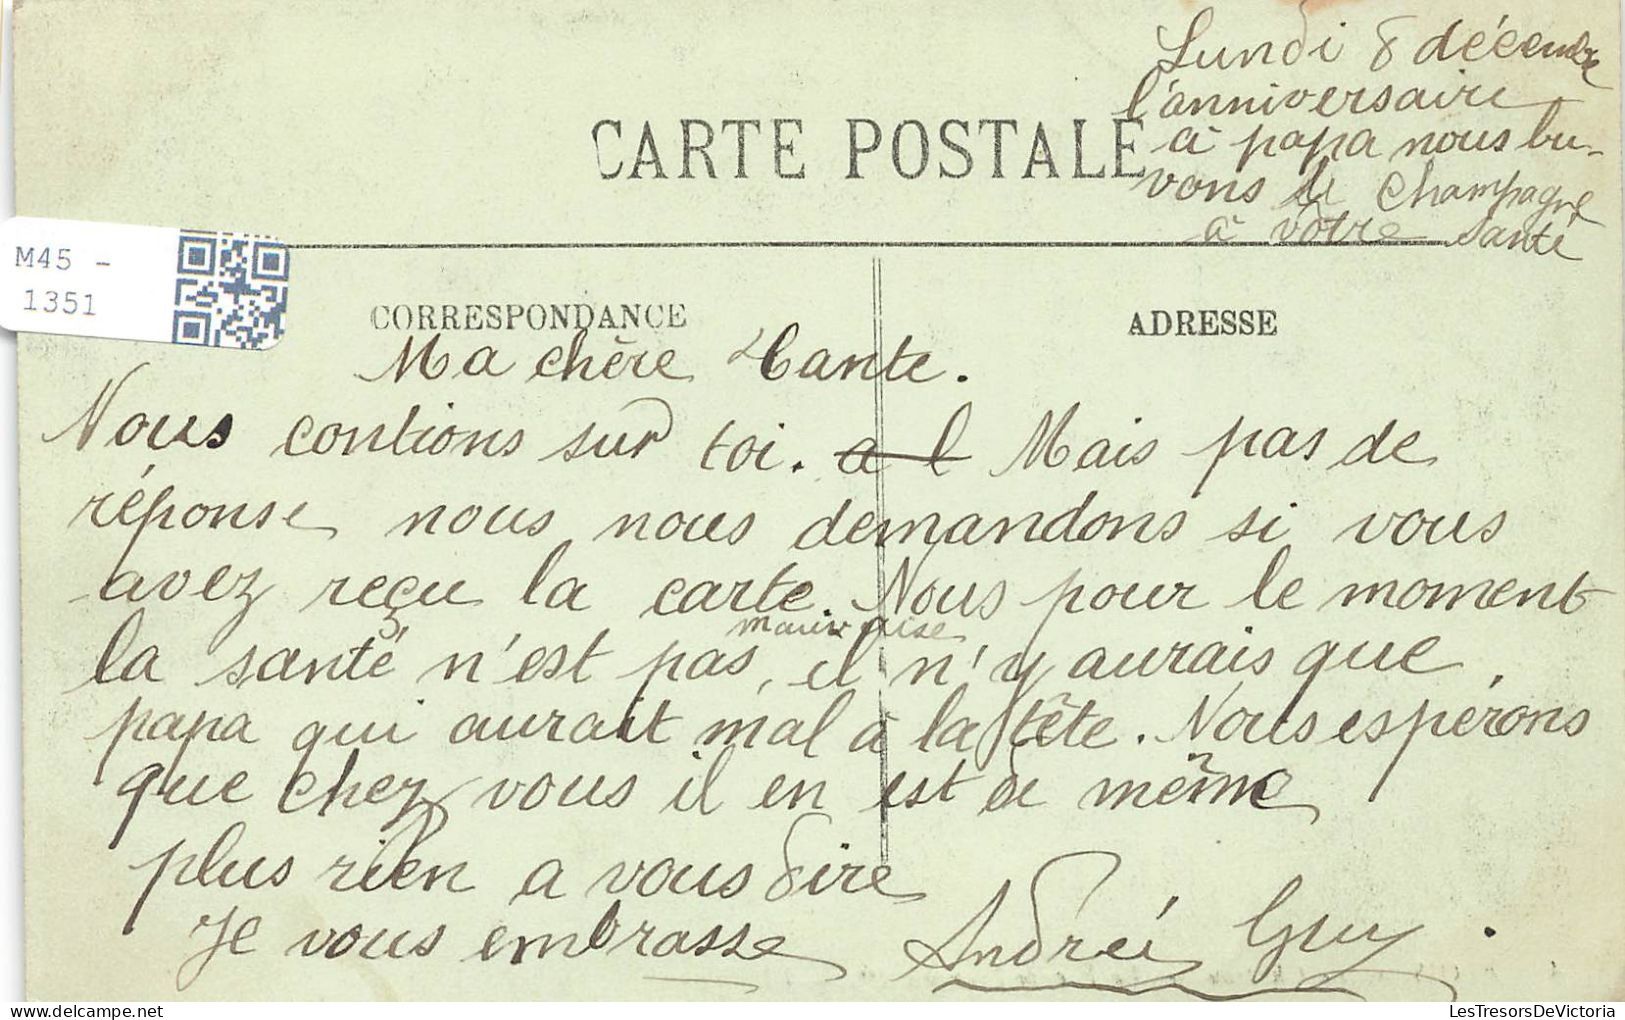 Lundi 8 décembre
l'anniversaire
à papa nous bu-
vons le Champagne
à votre santé
CARTE POSTALE
M45 -
1351
CORRESPONDANCE
ADRESSE
Ma chère tante.
Nous contions sur toi. a l Mais pas de
réponse nous nous demandons si vous
avez reçu la carte. Nous pour le moment
mauvaise
la santé n'est pas, il n'y aurais que
papa qui aurait mal à la tête. Nous espérons
que chez vous il en est de même
plus rien a vous dire
Je vous embrasse Andréé Guy.
LesTresorsDeVictoria